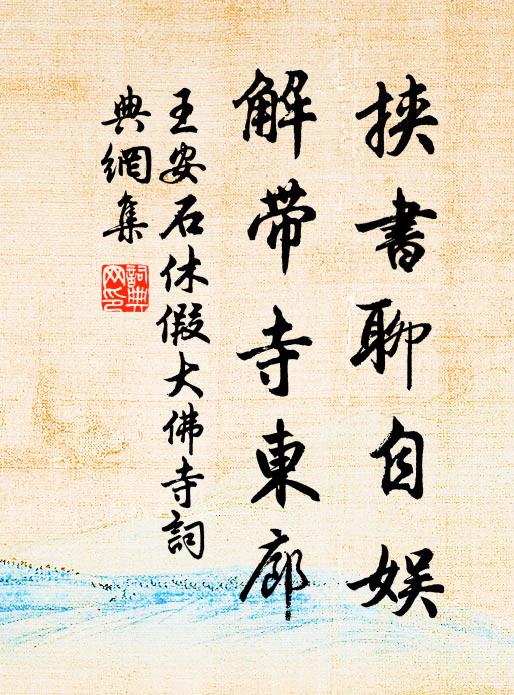 挾書聊自娛
解帶寺東廊
王安石休假大佛寺詞
典網集
詞典網印